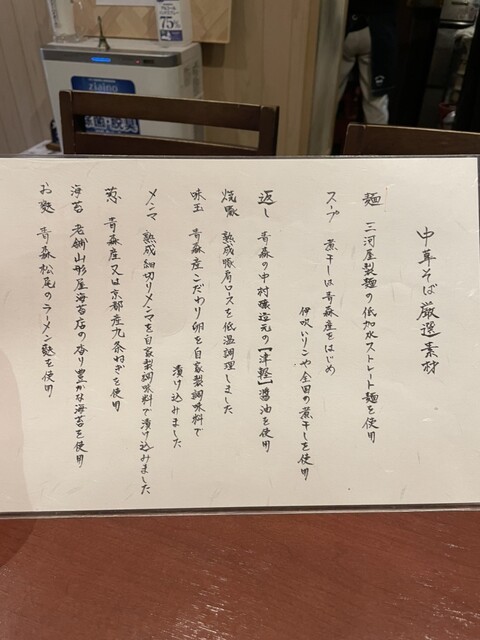 中華そば厳選素材
麺 三河屋製麺の低加水ストレート麺を使用
スープ 煮干しは青森産をはじめ
伊吹いりこや全国の煮干しを使用
返し 青森の中村醸造元の【津軽】醤油を使用
焼豚 熟成豚肩ロースを低温調理しました
味玉 青森産こだわり卵を自家製調味料で
漬け込みました
メンマ 熟成細切りメンマを自家製調味料で漬け込みました
葱 青森産又は京都産九条ねぎを使用
海苔 老舗山形屋海苔店の香り豊かな海苔を使用
お麩 青森松尾のラーメン麩を使用
ziaino
75%